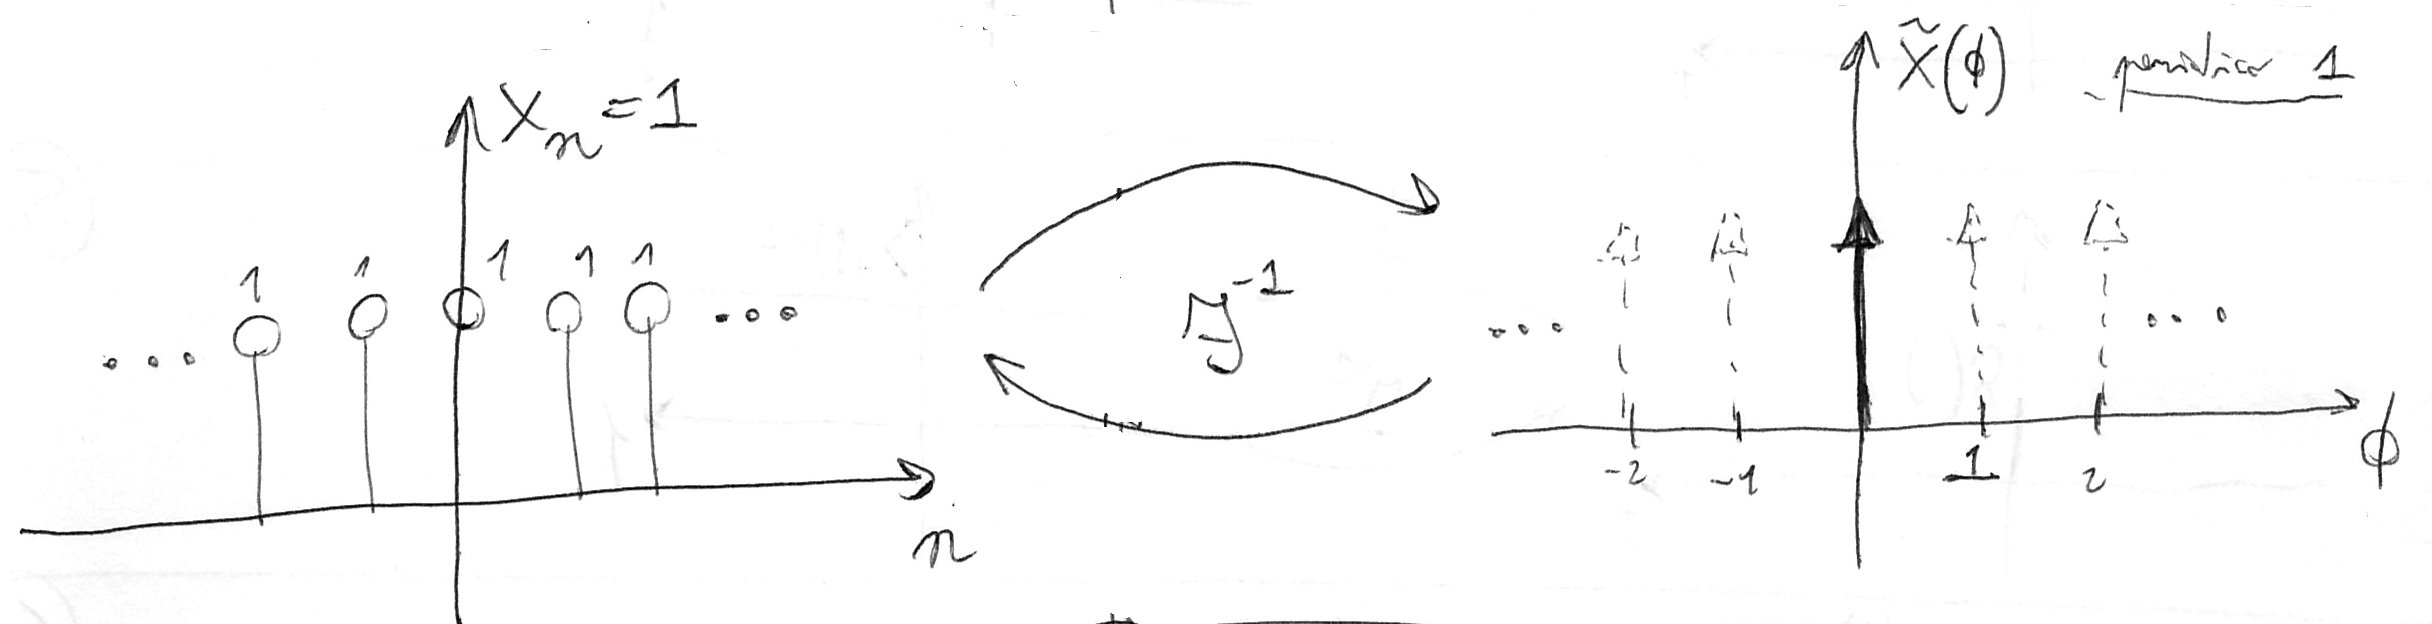 Xₙ = 1
1 1 1 1 1
... ...
n
ℱ⁻¹
X̃(ϕ)
periodica 1
... ...
-2 -1 1 2
ϕ